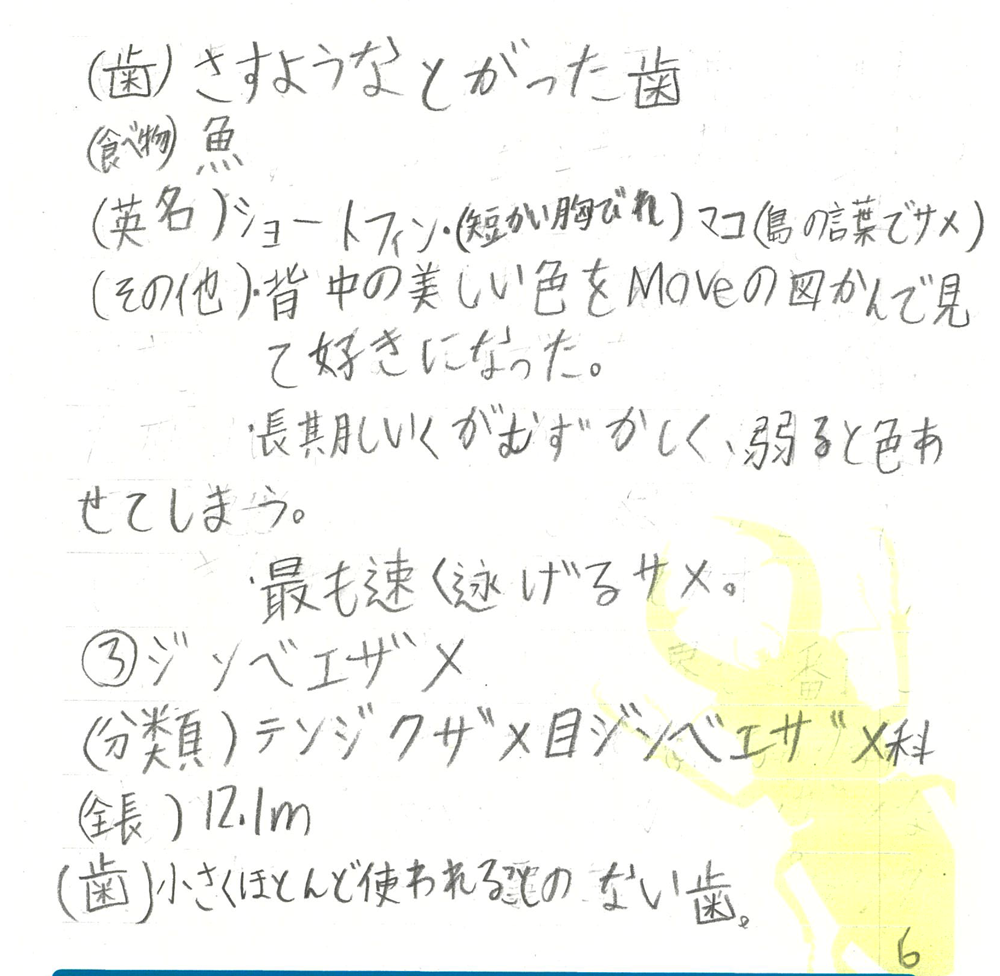 (歯)さすようなとがった歯
(食べ物)魚
(英名)ショートフィン・(短かい胸びれ)マコ(島の言葉でサメ)
(その他)・背中の美しい色をMoveの図かんで見
て好きになった。
・長期しいくがむずかしく、弱ると色あ
せてしまう。
・最も速く泳げるサメ。
③ジンベエザメ
(分類)テンジクザメ目ジンベエザメ科
(全長)12.1m
(歯)小さくほとんど使われることのない歯。
6